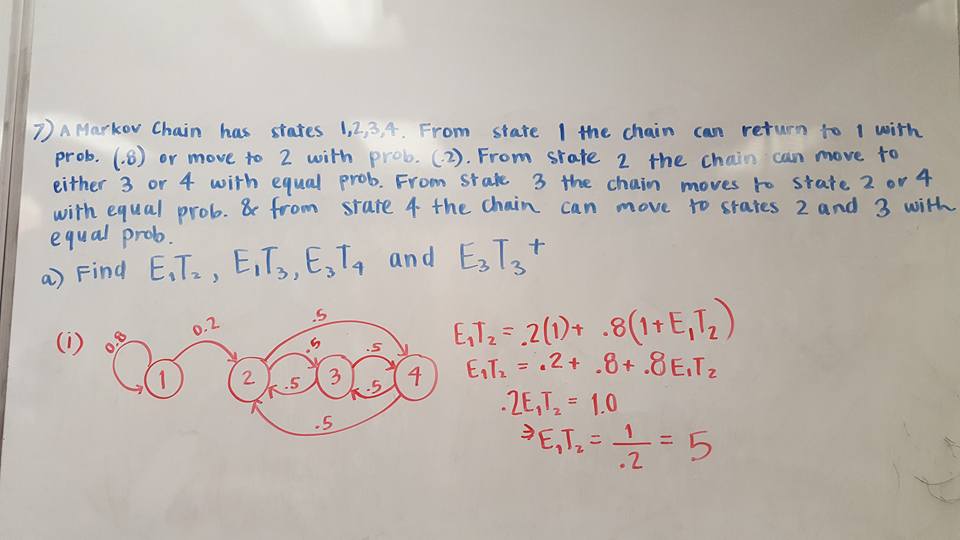 7) A Markov Chain has states 1,2,3,4. From state 1 the chain can return to 1 with
prob. (.8) or move to 2 with prob. (.2). From state 2 the chain can move to
either 3 or 4 with equal prob. From state 3 the chain moves to state 2 or 4
with equal prob. & from state 4 the chain can move to states 2 and 3 with
equal prob.
a) Find E₁T₂, E₁T₃, E₃T₄ and E₃T₃⁺
(i)
0.8
0.2
.5
.5
.5
1
2
3
4
.5
.5
.5
E₁T₂ = .2(1) + .8(1+E₁T₂)
E₁T₂ = .2 + .8 + .8E₁T₂
.2E₁T₂ = 1.0
⇒ E₁T₂ = 1/.2 = 5